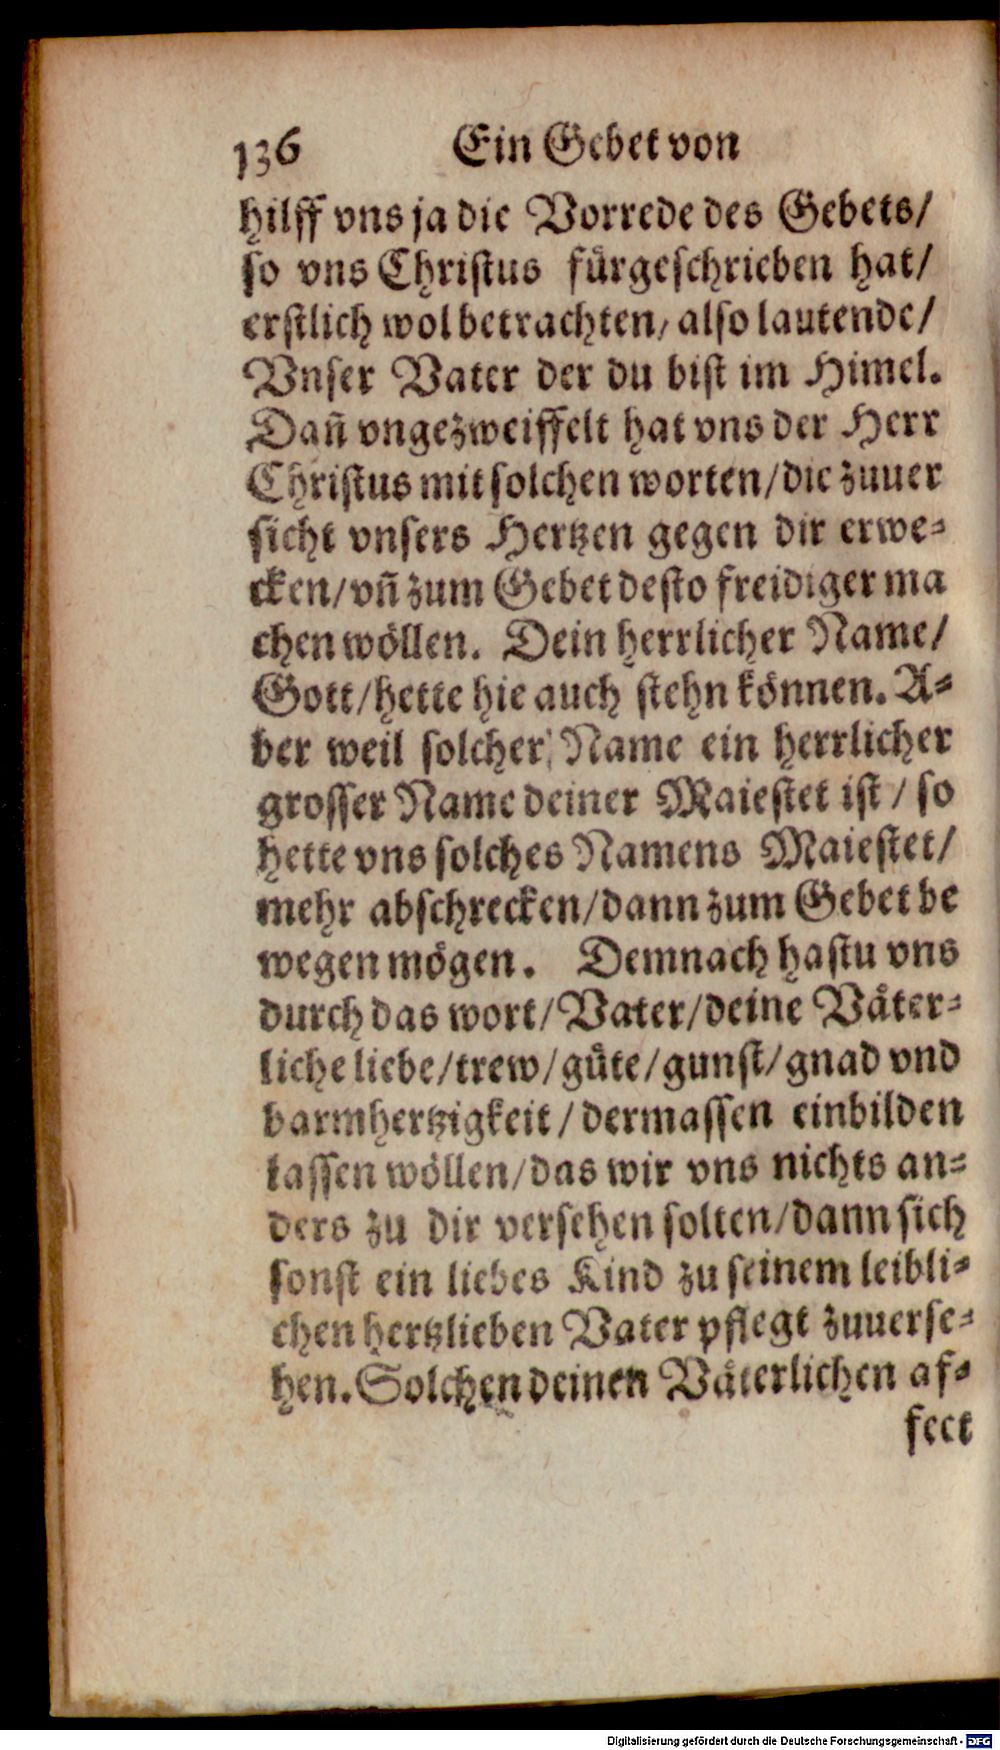 136 Ein Gebet von
hilff vns ja die Vorrede des Gebets/
so vns Christus fürgeschrieben hat/
erstlich wol betrachten/ also lautende/
Vnser Vater der du bist im Himel.
Dañ vngezweiffelt hat vns der Herr
Christus mit solchen worten/die zuuer
sicht vnsers Hertzen gegen dir erwe-
cken/vñ zum Gebet desto freidiger ma
chen wöllen. Dein herrlicher Name/
Gott/hette hie auch stehn können. A-
ber weil solcher Name ein herrlicher
grosser Name deiner Maiestet ist / so
hette vns solches Namens Maiestet/
mehr abschrecken/dann zum Gebet be
wegen mögen. Demnach hastu vns
durch das wort/Vater/deine Väter-
liche liebe/trew/güte/gunst/gnad vnd
barmhertzigkeit/dermassen einbilden
lassen wöllen/das wir vns nichts an-
ders zu dir versehen solten/dann sich
sonst ein liebes Kind zu seinem leibli-
chen hertzlieben Vater pflegt zuuerse-
hen. Solchen deinen Väterlichen af-
fect
Digitalisierung gefördert durch die Deutsche Forschungsgemeinschaft - DFG